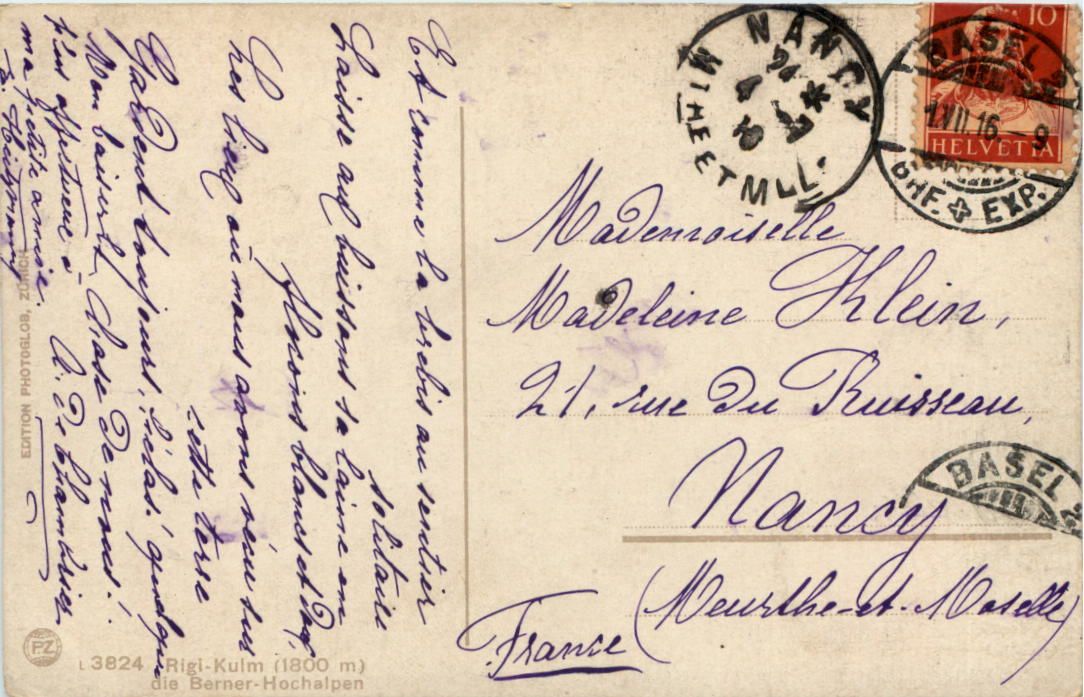 Et comme la brebis au sentier
solitaire
Laisse aux buissons sa laine en
flocons blancs et doux,
Les lieux où nous avons vécu sur
cette terre
Gardent toujours, hélas! quelque
chose de nous!
A. de Chambrier
Mon baiser le
plus affectueux à
ma petite amie.
EDITION PHOTOGLOB, ZÜRICH
PZ
L 3824 Rigi-Kulm (1800 m)
die Berner-Hochalpen
NANCY
MTHE ET MLLE
10
HELVETIA
BASEL 2
1.VII.16.-9
BHF. EXP.
Mademoiselle
Madeleine Klein,
21, rue du Ruisseau,
Nancy
BASEL 2
(Meurthe-et-Moselle)
France